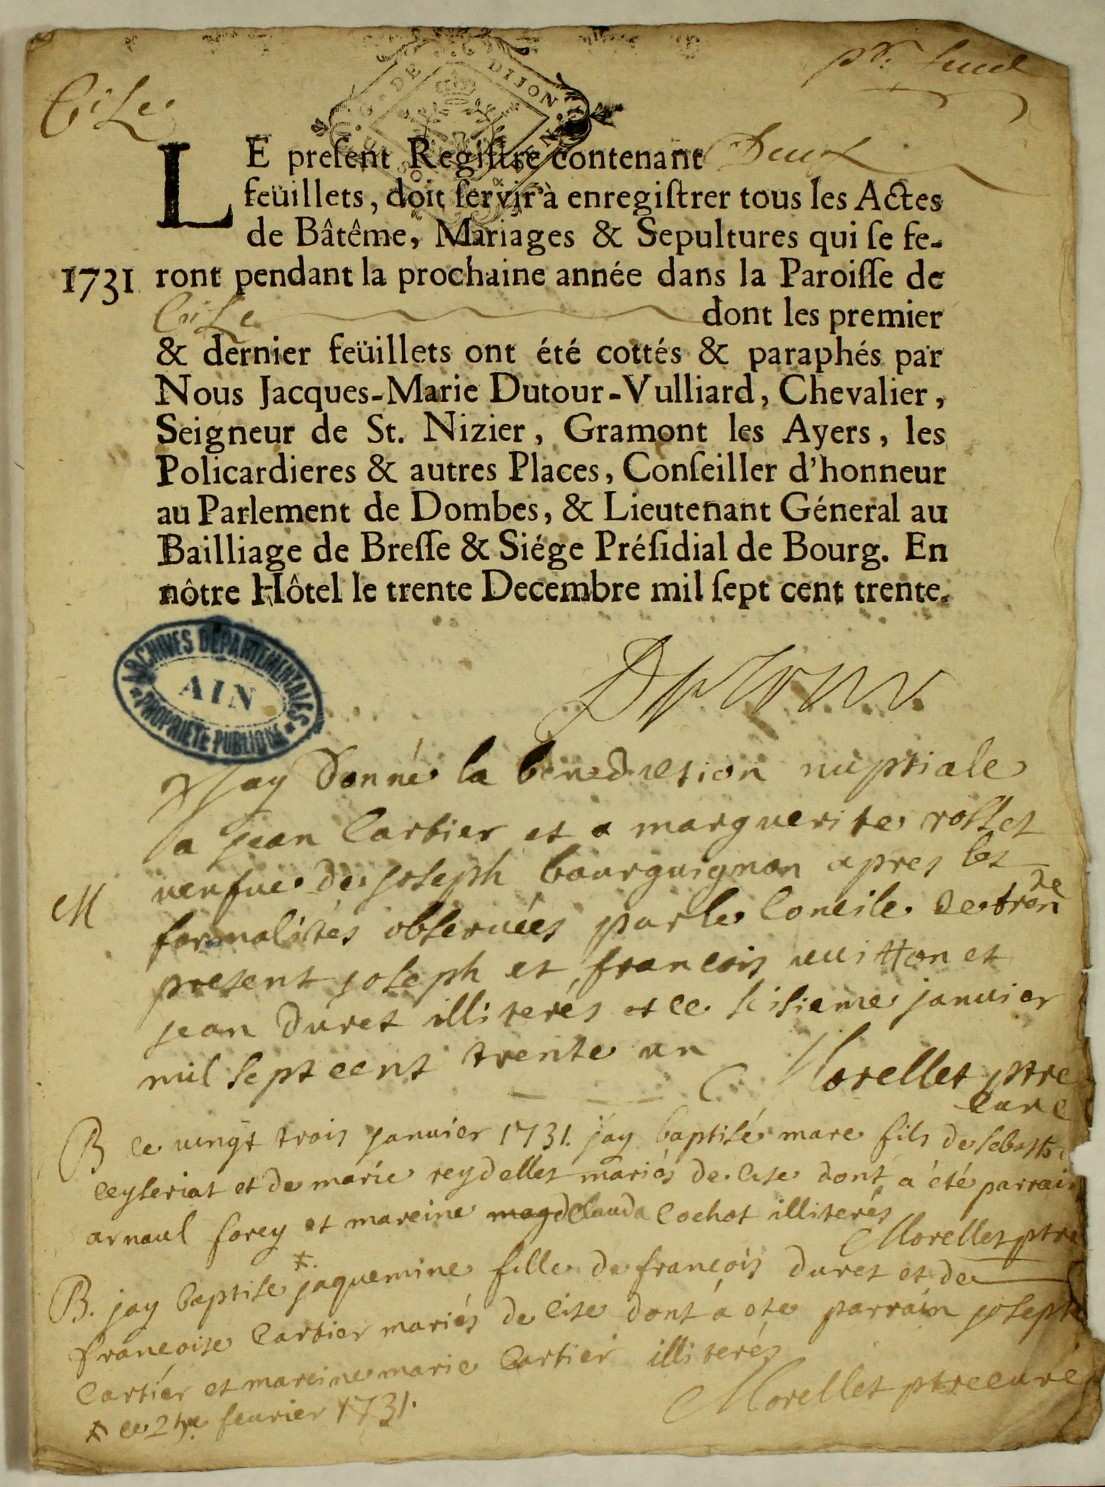 pr. feuil
CiZe
G. DE DIJON
LE preſent Regiſtre contenant Deux
feüillets, doit ſervir à enregiſtrer tous les Actes
de Bâtême, Mariages & Sepultures qui ſe fe-
1731 ront pendant la prochaine année dans la Paroiſſe de
CiZe dont les premier
& dernier feüillets ont été cottés & paraphés par
Nous Jacques-Marie Dutour-Vulliard, Chevalier,
Seigneur de St. Nizier, Gramont les Ayers, les
Policardieres & autres Places, Conſeiller d'honneur
au Parlement de Dombes, & Lieutenant Géneral au
Bailliage de Breſſe & Siége Préſidial de Bourg. En
nôtre Hôtel le trente Decembre mil ſept cent trente.
ARCHIVES DÉPARTEMENTALES
AIN
PROPRIÉTÉ PUBLIQUE
Jay Donné la benediction nuptiale
a jean Carbier et a marguerite rosset
M veufue de joseph bourguignon apres les
formalités obseruées par le Concile de trente
present joseph et francois uuitton et
jean duret illiterés et ce seisieme januier
mil sept cent trente un
C. Morellet ptre
cure
B ce vingt trois januier 1731. jay baptisé marc fils de sebasti
Ceyseriat et de marie reydellet mariés de cise dont a été parrain
arnaul forey et mareine magd Clauda Cochot illiterés
CMorellet ptre
B. jay baptise * jaquemine fille de francois duret et de
francoise Cartier mariés de Cise dont a ete parrain joseph
Cartier et mareine marie Cartier illiterés
* ce 2 feurier 1731.
CMorellet ptre curé